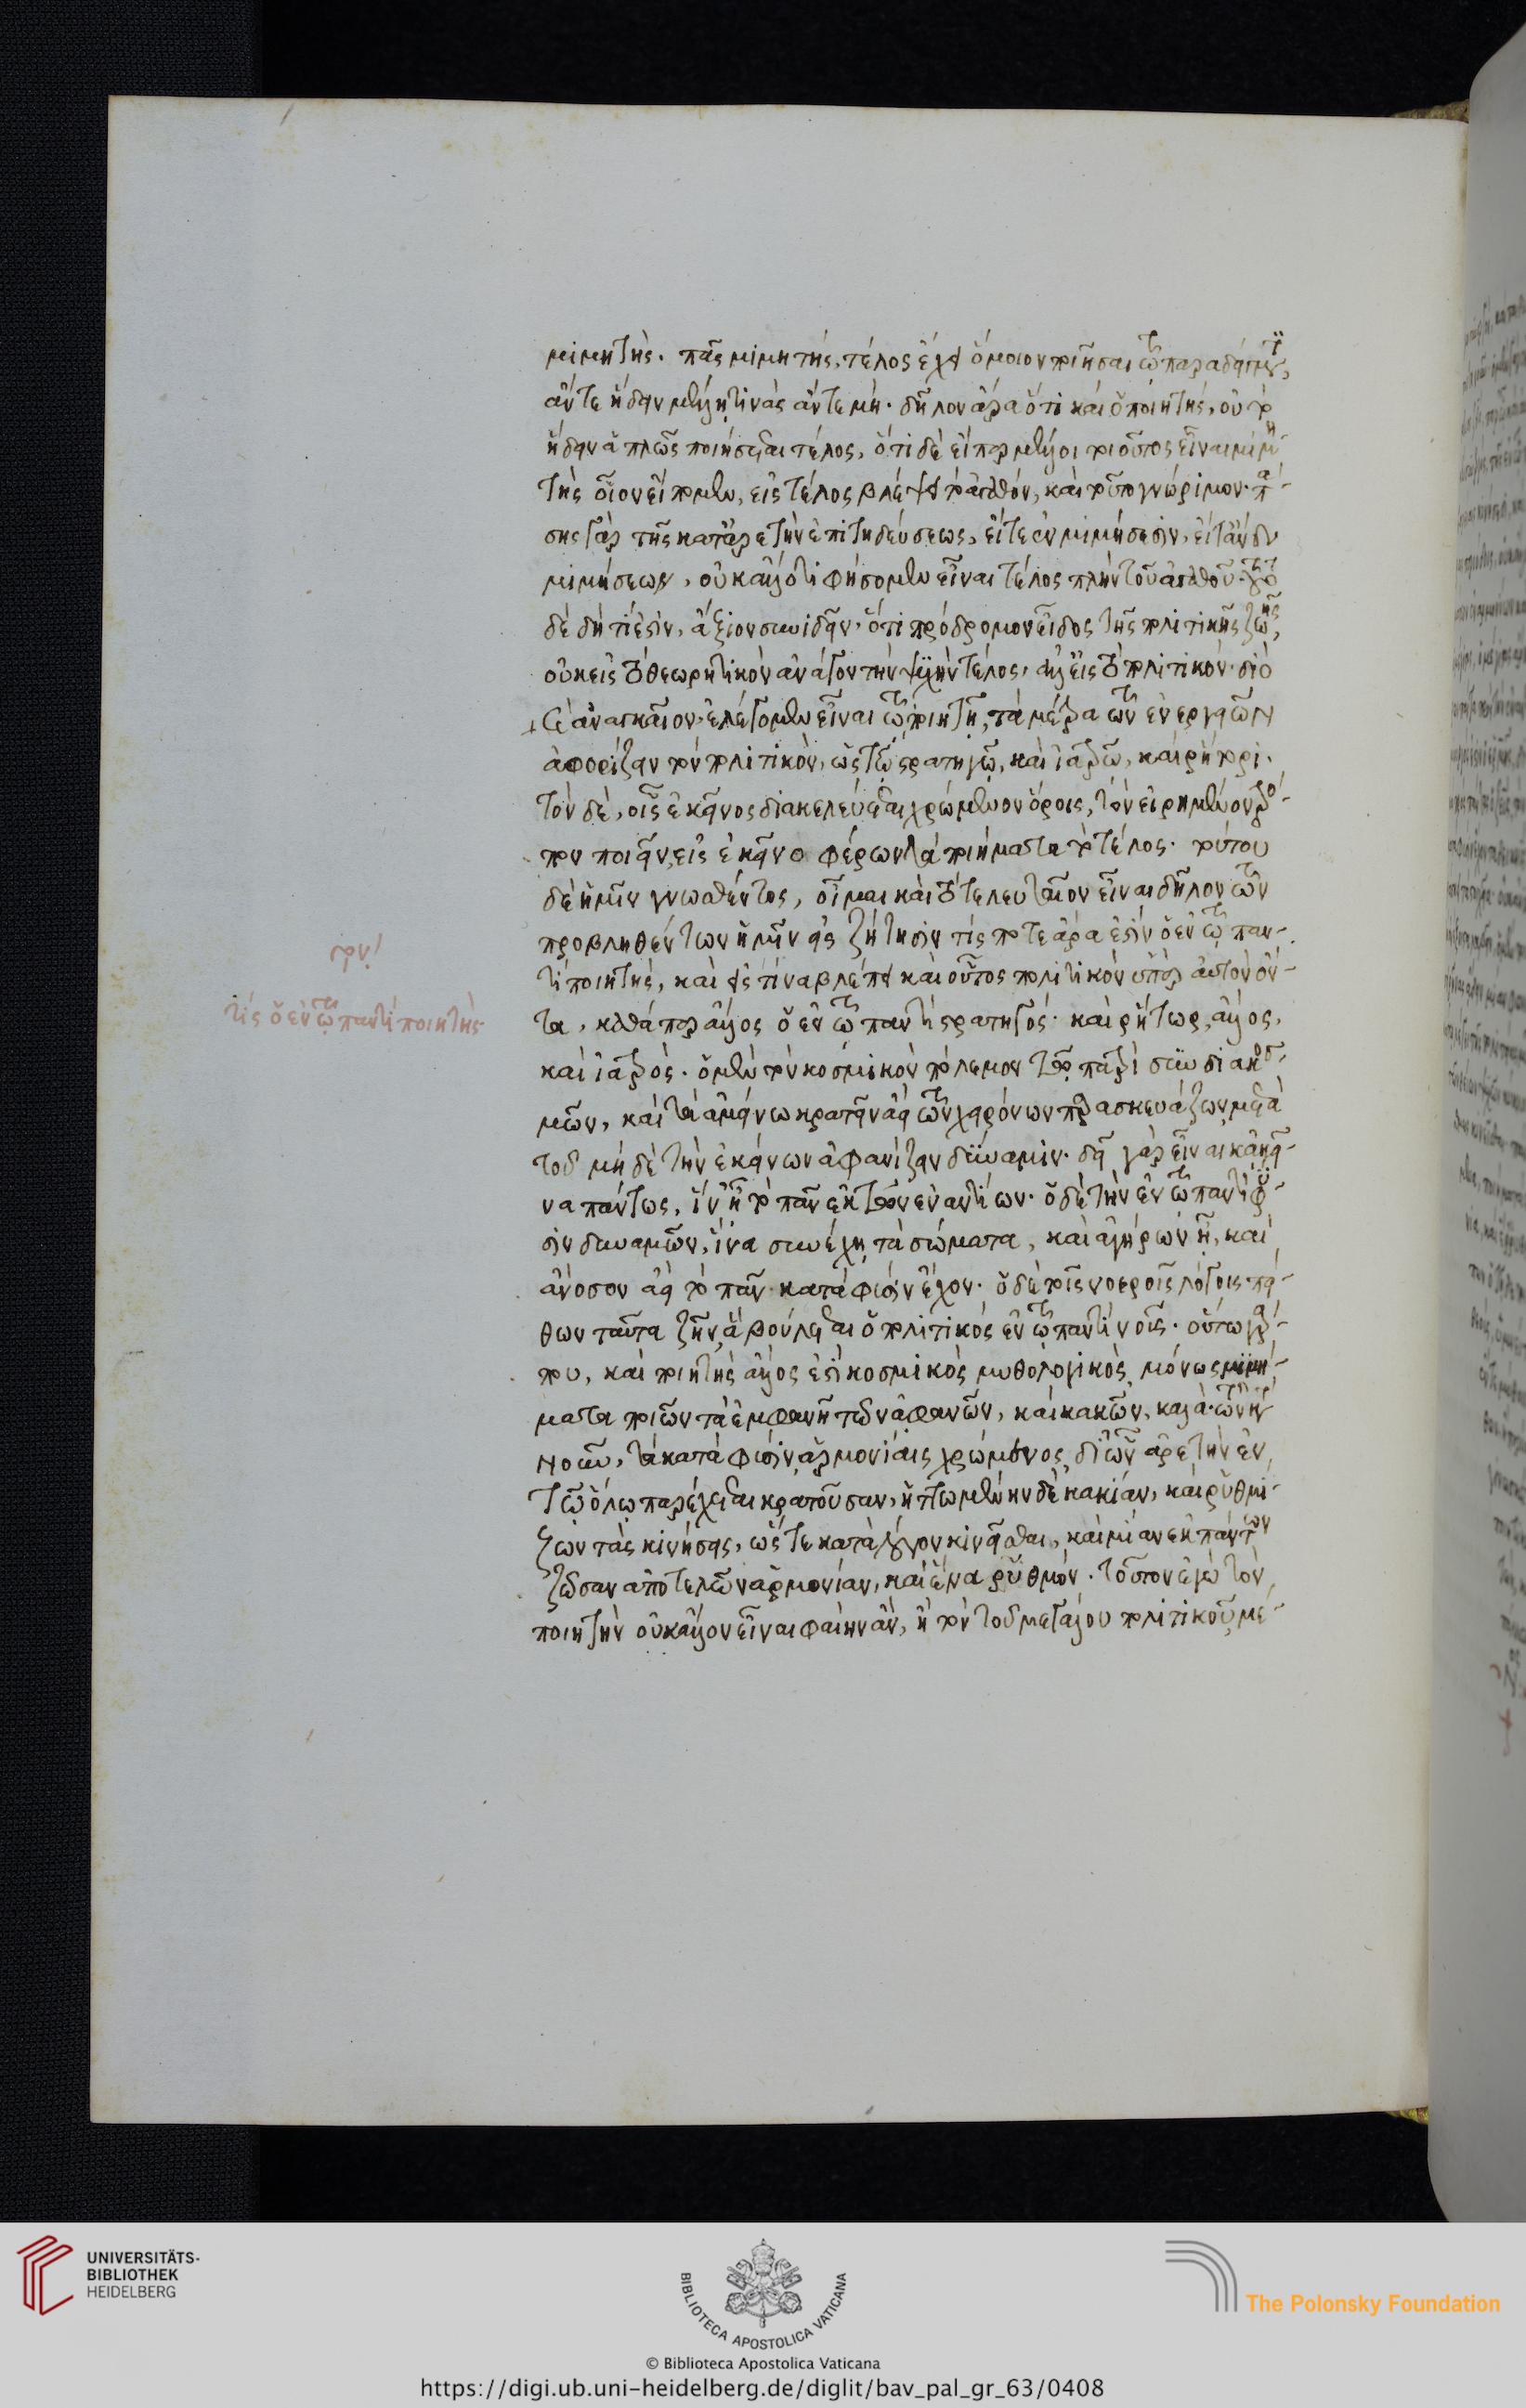 μιμητής. πᾶς μιμητὴς, τέλος ἔχει ὅμοιον ποιῆσαι τῷ παραδείγματι,
ἄν τε ἥδειν μέλλῃ τινὰς ἄν τε μή. δῆλον ἄρα ὅτι καὶ ὁ ποιητὴς, οὐ τὸ
ἥδειν ἁπλῶς ποιήσεται τέλος, ὅτι δὲ εἴπερ μέλλοι τοιοῦτος εἶναι μιμη-
τὴς οἷον εἴπομεν, εἰς τέλος βλέψει τὸ ἀγαθόν, καὶ τοῦτο γνώριμον. πά-
σης γὰρ τῆς κατ' ἀρετὴν ἐπιτηδεύσεως, εἴτε ἐν μιμήσεσιν, εἴτ' ἄνευ
μιμήσεων, οὐκ ἄλλό τι φήσομεν εἶναι τέλος πλὴν τοῦ ἀγαθοῦ. τοῦτο
δὲ δὴ τί ἐστιν, ἄξιον συνιδεῖν. ὅτι πρόδρομον εἶδος τῆς πολιτικῆς ζωῆς,
οὐκ εἰς τὸ θεωρητικὸν ἀνάγον τὴν ψυχὴν τέλος, ἀλλ' εἰς τὸ πολιτικόν. διὸ
καὶ ἀναγκαῖον ἐλέγομεν εἶναι τῷ ποιητῇ, τὰ μέτρα τῶν ἐνεργειῶν
ἀφορίζειν τὸν πολιτικὸν, ὡς τῷ στρατηγῷ, καὶ ἰατρῷ, καὶ ῥήτορι.
τὸν δὲ, οἷς ἐκεῖνος διακελεύεται χρώμενον ὅροις, τὸν εἰρημένον τρό-
πον ποιεῖν, εἰς ἐκεῖνο φέρων τὰ ποιήματα τὸ τέλος. τούτου
δὲ ἡμῖν γνωσθέντος, οἶμαι καὶ τὸ τελευταῖον εἶναι δῆλον τῶν
προβληθέντων ἡμῖν εἰς ζήτησιν τίς ποτε ἄρα ἐστὶν ὁ ἐν τῷ παν-
τὶ ποιητὴς, καὶ εἰς τίνα βλέπει καὶ οὗτος πολιτικὸν ὑπὲρ αὐτὸν ὄν-
τα, καθάπερ ἄλλος ὁ ἐν τῷ παντὶ στρατηγός. καὶ ῥήτωρ, ἄλλος,
καὶ ἰατρὸς. ὁ μὲν τὸν κοσμικὸν πόλεμον τῷ πατρὶ συνδιακοσ-
μῶν, καὶ τὰ ἀμείνω κρατεῖν ἀεὶ τῶν χειρόνων παρασκευάζων μετὰ
τοῦ μηδὲ τὴν ἐκείνων ἀφανίζειν δύναμιν. δεῖ γὰρ εἶναι κἀκεῖ-
να πάντως, ἵν' ᾖ τὸ πᾶν ἐκ τῶν ἐναντίων. ὁ δὲ τὴν ἐν τῷ παντὶ φύ-
σιν δυναμῶν, ἵνα συνέχῃ τὰ σώματα, καὶ ἀγήρων ᾖ, καὶ
ἄνοσον ἀεὶ τὸ πᾶν κατὰ φύσιν ἔχον. ὁ δὲ τοῖς νοεροῖς λόγοις πεί-
θων ταῦτα ζῆν, ἃ βούλεται ὁ πολιτικὸς ἐν τῷ παντὶ νοῦς. οὕτω γάρ
που, καὶ ποιητὴς ἄλλος ἐστὶ κοσμικὸς μυθολογικὸς μόνως μιμή-
ματα ποιῶν τὰ ἐμφανῆ τῶν ἀφανῶν, καὶ κακῶν, καλὰ.
νοῦν, τὰ κατὰ φύσιν, ἁρμονίαις χρώμενος, δι' ὧν ἀρετὴν ἐν
τῷ ὅλῳ παρέχεται κρατοῦσαν, ἡττωμένην δὲ κακίαν, καὶ ῥυθμί-
ζων τὰς κινήσεις, ὥστε κατὰ λόγον κινεῖσθαι, καὶ μίαν ἐκ πάντων
ζῶσαν ἀποτελῶν ἁρμονίαν, καὶ ἕνα ῥυθμόν. τοῦτον ἐγὼ τὸν
ποιητὴν οὐκ ἄλλον εἶναι φαίην ἄν, ἢ τὸν τοῦ μεγάλου πολιτικοῦ με-
τίς ὁ ἐν τῷ παντὶ ποιητὴς
UNIVERSITÄTS-
BIBLIOTHEK
HEIDELBERG
BIBLIOTECA APOSTOLICA VATICANA
The Polonsky Foundation
© Biblioteca Apostolica Vaticana
https://digi.ub.uni-heidelberg.de/diglit/bav_pal_gr_63/0408